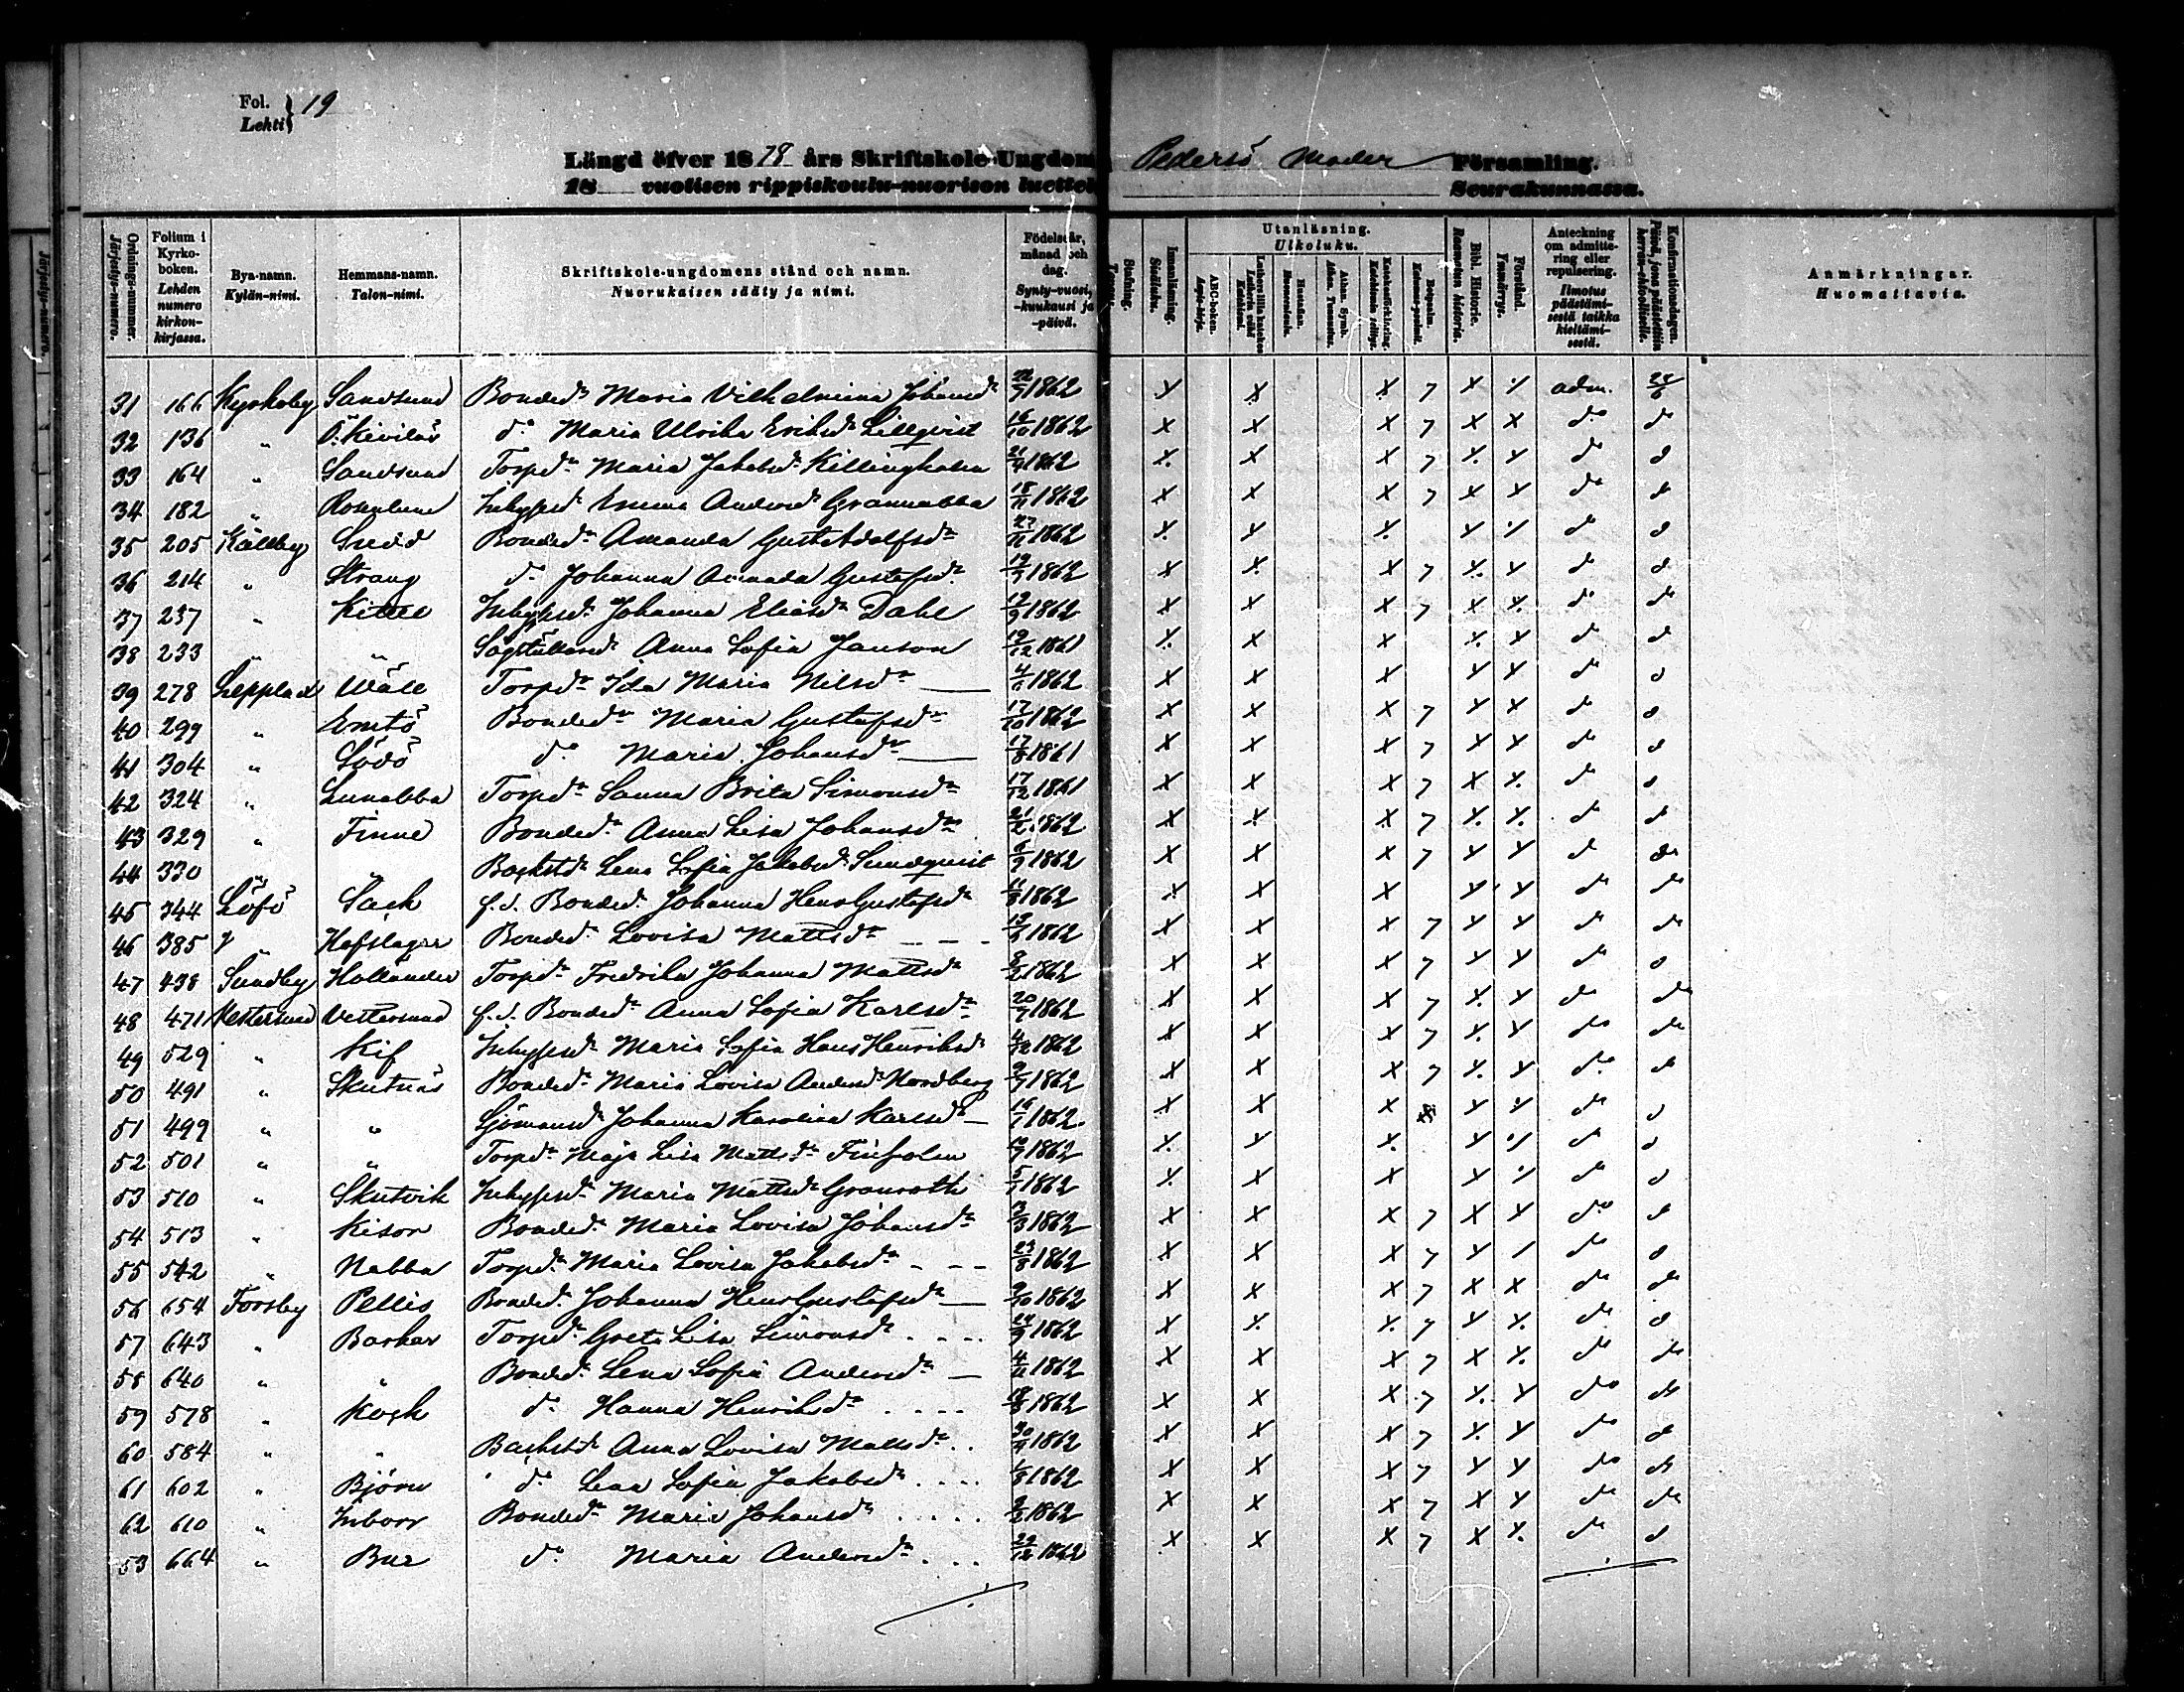 Fol. Lehti } 19
Längd öfver 1878 års Skriftskole-Ungdom Pedersö Moder Församling.
18 vuotisen rippiskoulu-nuorison luettel Seurakunnassa.
Ordnings-nummer. Järjestys-numero.
Folium i Kyrko-boken. Lehden numero kirkon-kirjassa.
Bya-namn. Kylän-nimi.
Hemmans-namn. Talon-nimi.
Skriftskole-ungdomens stånd och namn. Nuorukaisen sääty ja nimi.
Födelseår, månad och dag. Synty-vuosi, -kuukausi ja -päivä.
Stafning. Tavuu.
Innanläsning. Sisäluku.
Utanläsning. Ulkoluku.
ABC-boken. Aapis-kirja.
Luthers lilla kateches. Lutherin vähä Katekismi.
Hustaflan. Huoneentaulu.
Athan. Symb. Athan. Tunnustus.
Katekesförklaring. Katekismin selitys.
Botpsalm. Katumus-psalmit.
Bibl. Historie. Raamatun historia.
Förstånd. Ymmärrys.
Anteckning om admittering eller repulsering. Ilmotus päästämisestä taikka kieltämisestä.
Konfirmationsdagen. Päivä, jona päästettiin herran-ehtoolliselle.
Anmärkningar. Huomattavia.
31 166 Kyrkoby Sandsund Bonded:r Maria Vilhelmina Johansd:r 22/7 1862 x x x 7 x ⁒ adm. 24/6
32 136 " Ö. Kivilös d:o Maria Ulrika Eriksd:r Lillqvist 16/10 1862 x x x 7 x x d:o do
33 164 " Sandsund Torpd:r Maria Jakobsd:r Killingholm 21/4 1862 x x x 7 x x do d
34 182 " Rosenlund Inhysesd Emma Andersd:r Grannabba 18/11 1862 x x x 7 x x do d
35 205 Kållby Sved Bonded:r Amanda Gust.Adolfsd:r 27/11 1862 x x x x ⁒ do d
36 214 " Strang d:o Johanna Amanda Gustafsd:r 19/7 1862 x x x 7 x x do d
37 237 " Kittle Inhysesd:r Johanna Eliasd:r Dahl 12/9 1862 x x x 7 x x do do
38 233 " " Anna Sofia Janson 19/12 1861 x x x x x do d
39 278 Lepplax Wäle Torpd:r Ida Maria Nilsd:r 4/6 1862 x x x x x do d
40 299 " Emtö Bonded:r Maria Gustafsd:r 17/10 1862 x x x 7 x x do d
41 304 " Lövö d:o Maria Johansd:r 17/8 1861 x x x 7 x x do d
42 324 " Lunabba Torpd:r Sanna Brita Simonsd:r 17/12 1861 x x x 7 x x do d
43 329 " Finne Bonded:r Anna Lisa Johansd:r 21/2 1862 x x x 7 x x do d
44 330 " " Backstd:r Lena Sofia Jakobsd:r Sundqvist 6/9 1862 x x x 7 x x d do
45 344 Löfö Sack f.d. Bonded:r Johanna Hens Gustafsd:r 11/8 1862 x x x x x do do
46 385 Y " Hofslagar Bonded:r Lovisa Mattsd:r 13/2 1862 x x x 7 x x do do
47 438 Sundby Hollander Torpd:r Fredrika Johanna Mattsd:r 8/2 1862 x x x 7 x x do d
48 471 Vestersund Vestersund f.d. Bonded:r Anna Sofia Karlsd:r 20/7 1862 x x x 7 x x do do
49 529 " Kif Inhysesd:r Maria Sofia Hans Henriksd:r 4/12 1862 x x x 7 x x do do
50 491 " Skutnäs Bonded:r Maria Lovisa Andersd:r Nordberg 9/7 1862 x x x 7 x x do d
51 499 " " Sjömansd:r Johanna Karolina Karlsd:r 16/1 1862 x x x x x do d
52 501 " " Torpd:r Maja Lisa Mattsd:r Finholm 19/9 1862 x x x x ⁒ do d
53 510 " Skutvik Inhysesd:r Maria Mattsd:r Granroth 5/7 1862 x x x x ⁒ do d
54 513 " Kisor Bonded:r Maria Lovisa Johansd:r 13/3 1862 x x x 7 x x do d
55 542 " Nabba Torpd:r Maria Lovisa Jakobsd:r 23/8 1862 x x x 7 x / do d
56 654 Forsby Pellis Bonded:r Johanna Hens Gustafsd:r 9/10 1862 x x x 7 x x do do
57 643 " Barkar Torpd:r Greta Lisa Simonsd:r 24/9 1862 x x x 7 x x do d
58 640 " " Bonded:r Lena Sofia Andersd:r 4/11 1862 x x x 7 x x do do
59 578 " Kock d:o Hanna Henriksd:r 18/8 1862 x x x 7 x x do do
60 584 " " Backstd:r Anna Lovisa Mattsd:r 30/9 1862 x x x 7 x x do d
61 602 " Björn d:o Lena Sofia Jakobsd:r 1/8 1862 x x x 7 x x do do
62 610 " Inborr Bonded:r Maria Johansd:r 2/2 1862 x x x 7 x x do do
53 664 " Bur d:o Maria Andersd:r 29/12 1862 x x x 7 x x do d